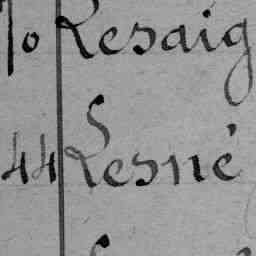 70 Lesaig
44 Lesné